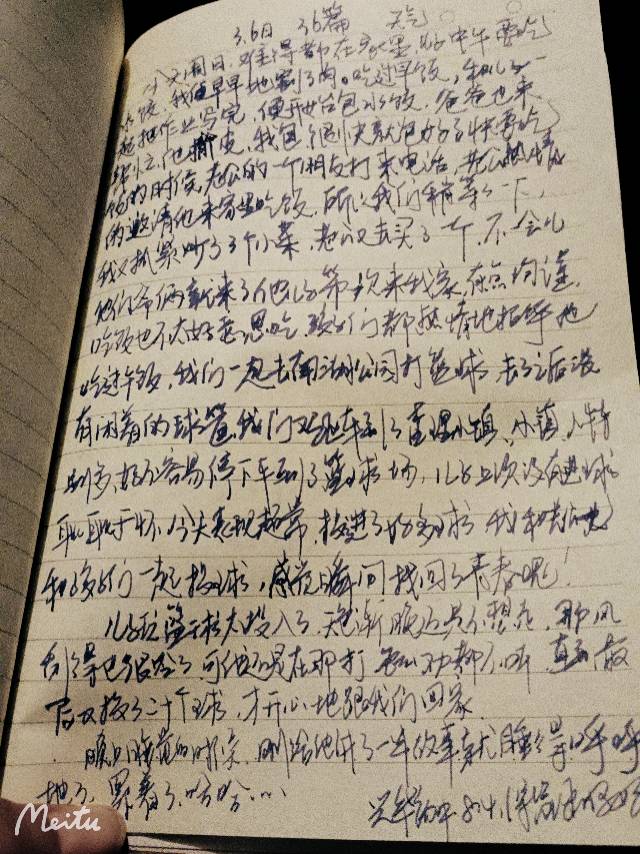 3.6日 36篇 天气
今天周日，难得都在家里，中午要吃
水饺，我便早早地剁了肉。吃过早饭，和儿子一
起把作业写完，便开始包水饺，爸爸也来
他擀皮，我包，很快就包好了，快要吃
饭的时候，老公的一个朋友打来电话，老公热情
的邀请他来家里吃饭，所以我们稍等了一下，
我又抓紧炒了3个小菜，老公又去买了一个，不一会儿
他们爷俩就来了，他儿子第一次来我家，有点拘谨，
吃饭也不太好意思吃，孩子们都热情地招呼他
吃过午饭，我们一起去南湖公园打篮球，去了之后没
有闲着的球篮，我们又驱车到了小镇，小镇人特
别多，好不容易停下车到了篮球场，儿子上次没有进球
耿耿于怀，今天表现超常，投进了好多球，我和
和孩子们一起投球，感觉瞬间找回了青春呢！
儿子玩篮球太投入了，天色渐晚还是不想走，那风
刮得也很冷了，可他还是在那打，都不听，直到最
后又投了二十个球，才开心地跟我们回家
晚上睡觉的时候，刚给他讲了一半故事就睡得呼呼
地了，累着了，哈哈…
Meitu